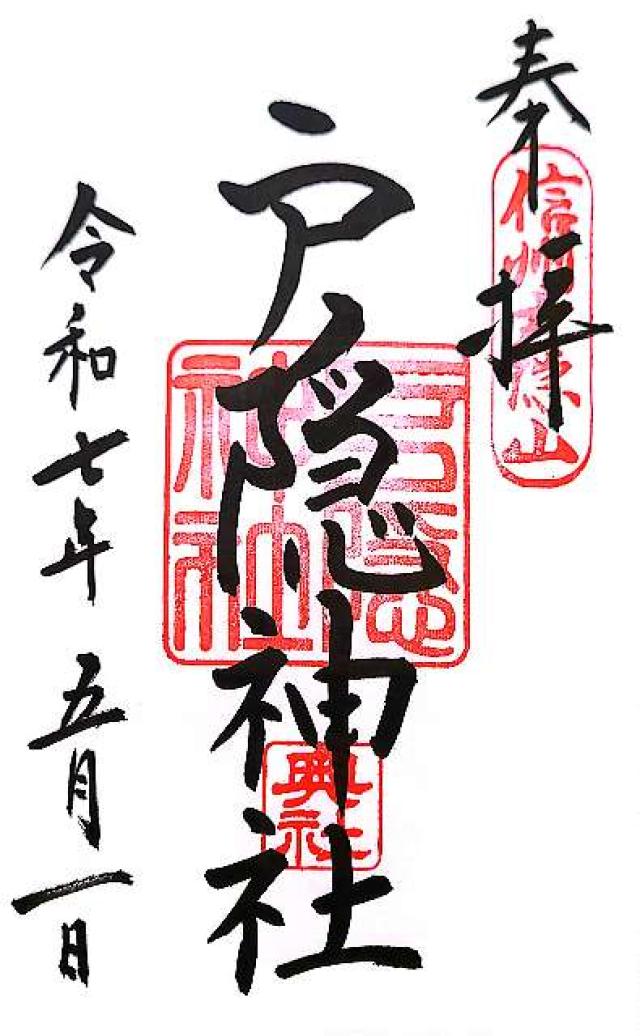 奉拝
信州戸隠山
戸隠神社
戸隠神社
奥社
令和七年五月一日